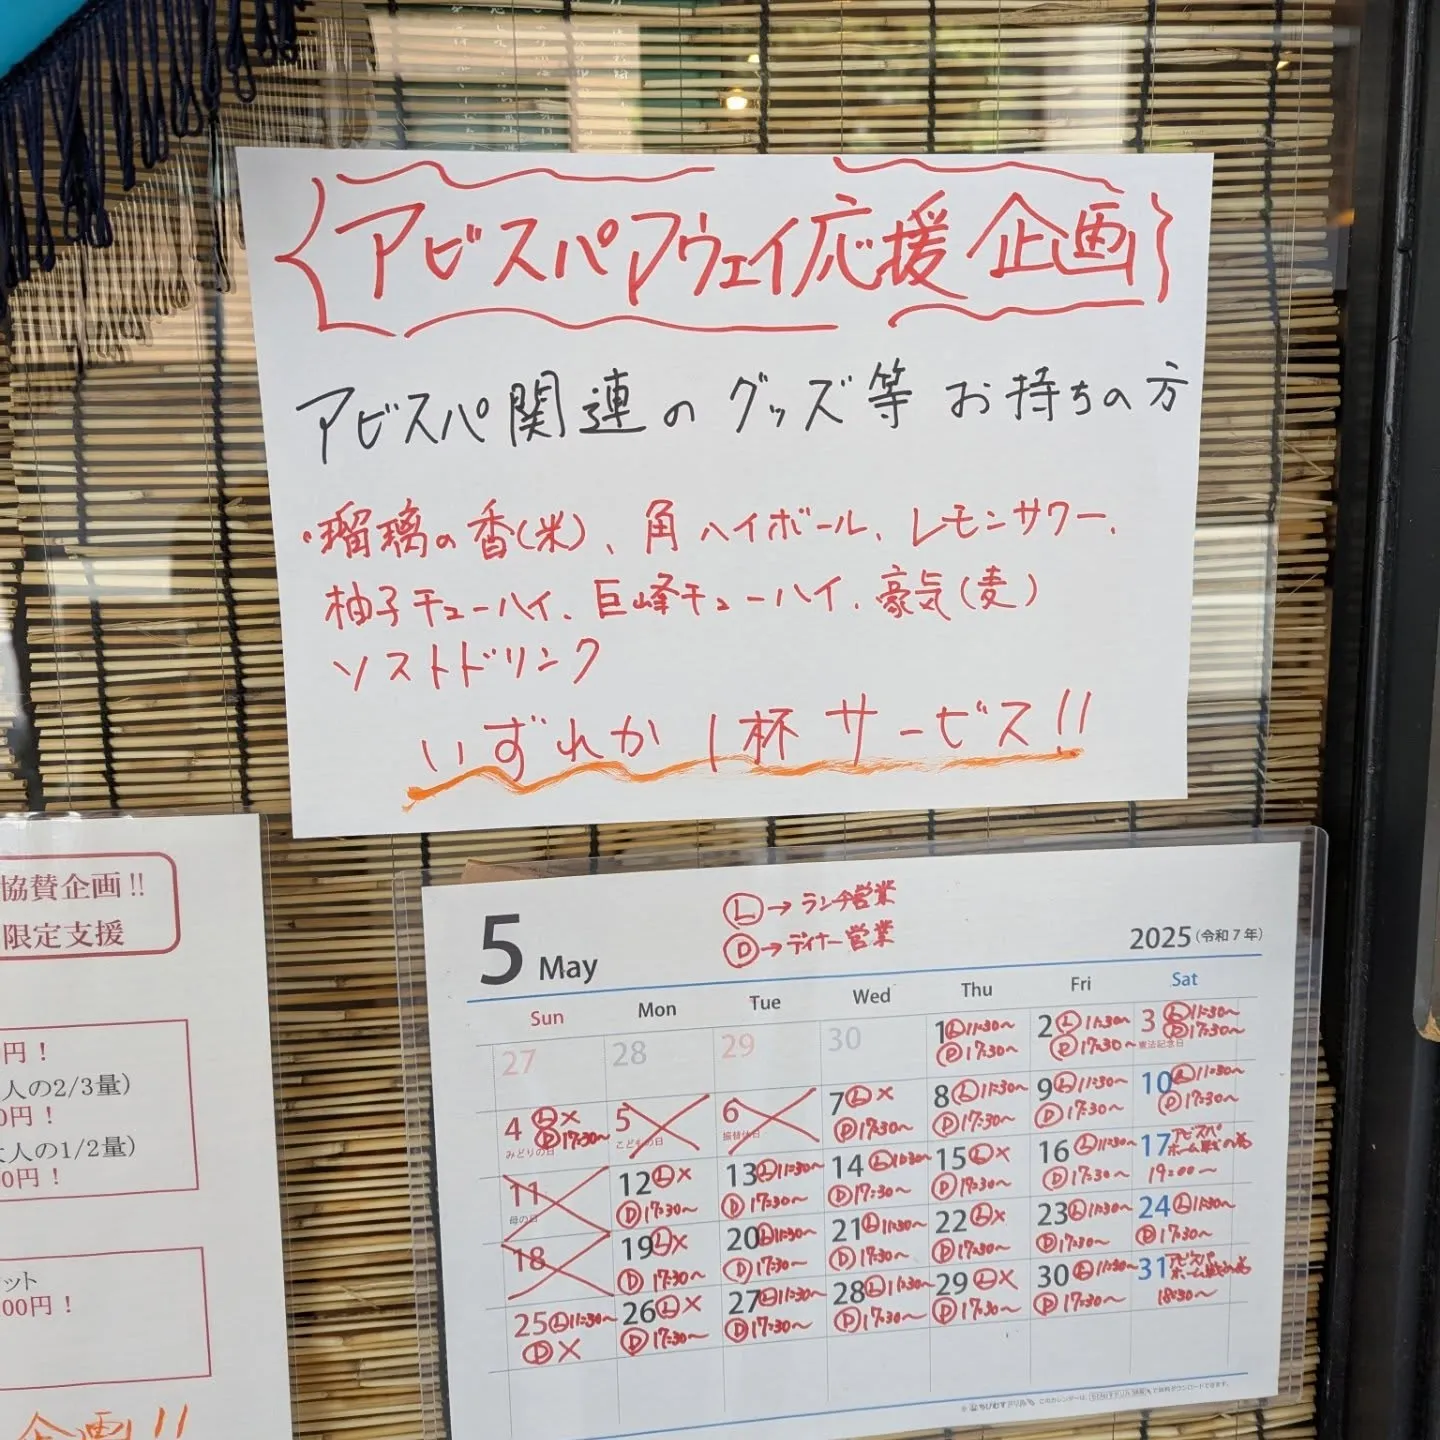 アビスパアウェイ応援企画
アビスパ関連のグッズ等お持ちの方
・瑠璃の香(米)、角ハイボール、レモンサワー、
柚子チューハイ、巨峰チューハイ、豪気(麦)
ソストドリンク
いずれか1杯サービス!!
協賛企画!!
限定支援
円！
人の2/3量)
0円！
大人の1/2量)
0円！
ット
00円！
企画!!
5 May
Ⓛ→ランチ営業
Ⓓ→ディナー営業
2025(令和7年)
Sun Mon Tue Wed Thu Fri Sat
27 28 29 30 1 Ⓛ11:30～ 2 Ⓛ11:30～ 3 Ⓛ11:30～
Ⓓ17:30～ Ⓓ17:30～ Ⓓ17:30～
憲法記念日
4 Ⓛ× 5 6 7 Ⓛ× 8 Ⓛ11:30～ 9 Ⓛ11:30～ 10 Ⓛ11:30～
Ⓓ17:30～ Ⓓ17:30～ Ⓓ17:30～ Ⓓ17:30～ Ⓓ17:30～
みどりの日 こどもの日 振替休日
11 12 Ⓛ× 13 Ⓛ11:30～ 14 Ⓛ11:30～ 15 Ⓛ× 16 Ⓛ11:30～ 17 アビスパ
母の日 Ⓓ17:30～ Ⓓ17:30～ Ⓓ17:30～ Ⓓ17:30～ Ⓓ17:30～ ホーム戦の為
19:00～
18 19 Ⓛ× 20 Ⓛ11:30～ 21 Ⓛ11:30～ 22 Ⓛ× 23 Ⓛ11:30～ 24 Ⓛ11:30～
Ⓓ17:30～ Ⓓ17:30～ Ⓓ17:30～ Ⓓ17:30～ Ⓓ17:30～ Ⓓ17:30～
25 Ⓛ11:30～ 26 Ⓛ× 27 Ⓛ11:30～ 28 Ⓛ11:30～ 29 Ⓛ× 30 Ⓛ11:30～ 31 アビスパ
Ⓓ× Ⓓ17:30～ Ⓓ17:30～ Ⓓ17:30～ Ⓓ17:30～ Ⓓ17:30～ ホーム戦の為
18:30～